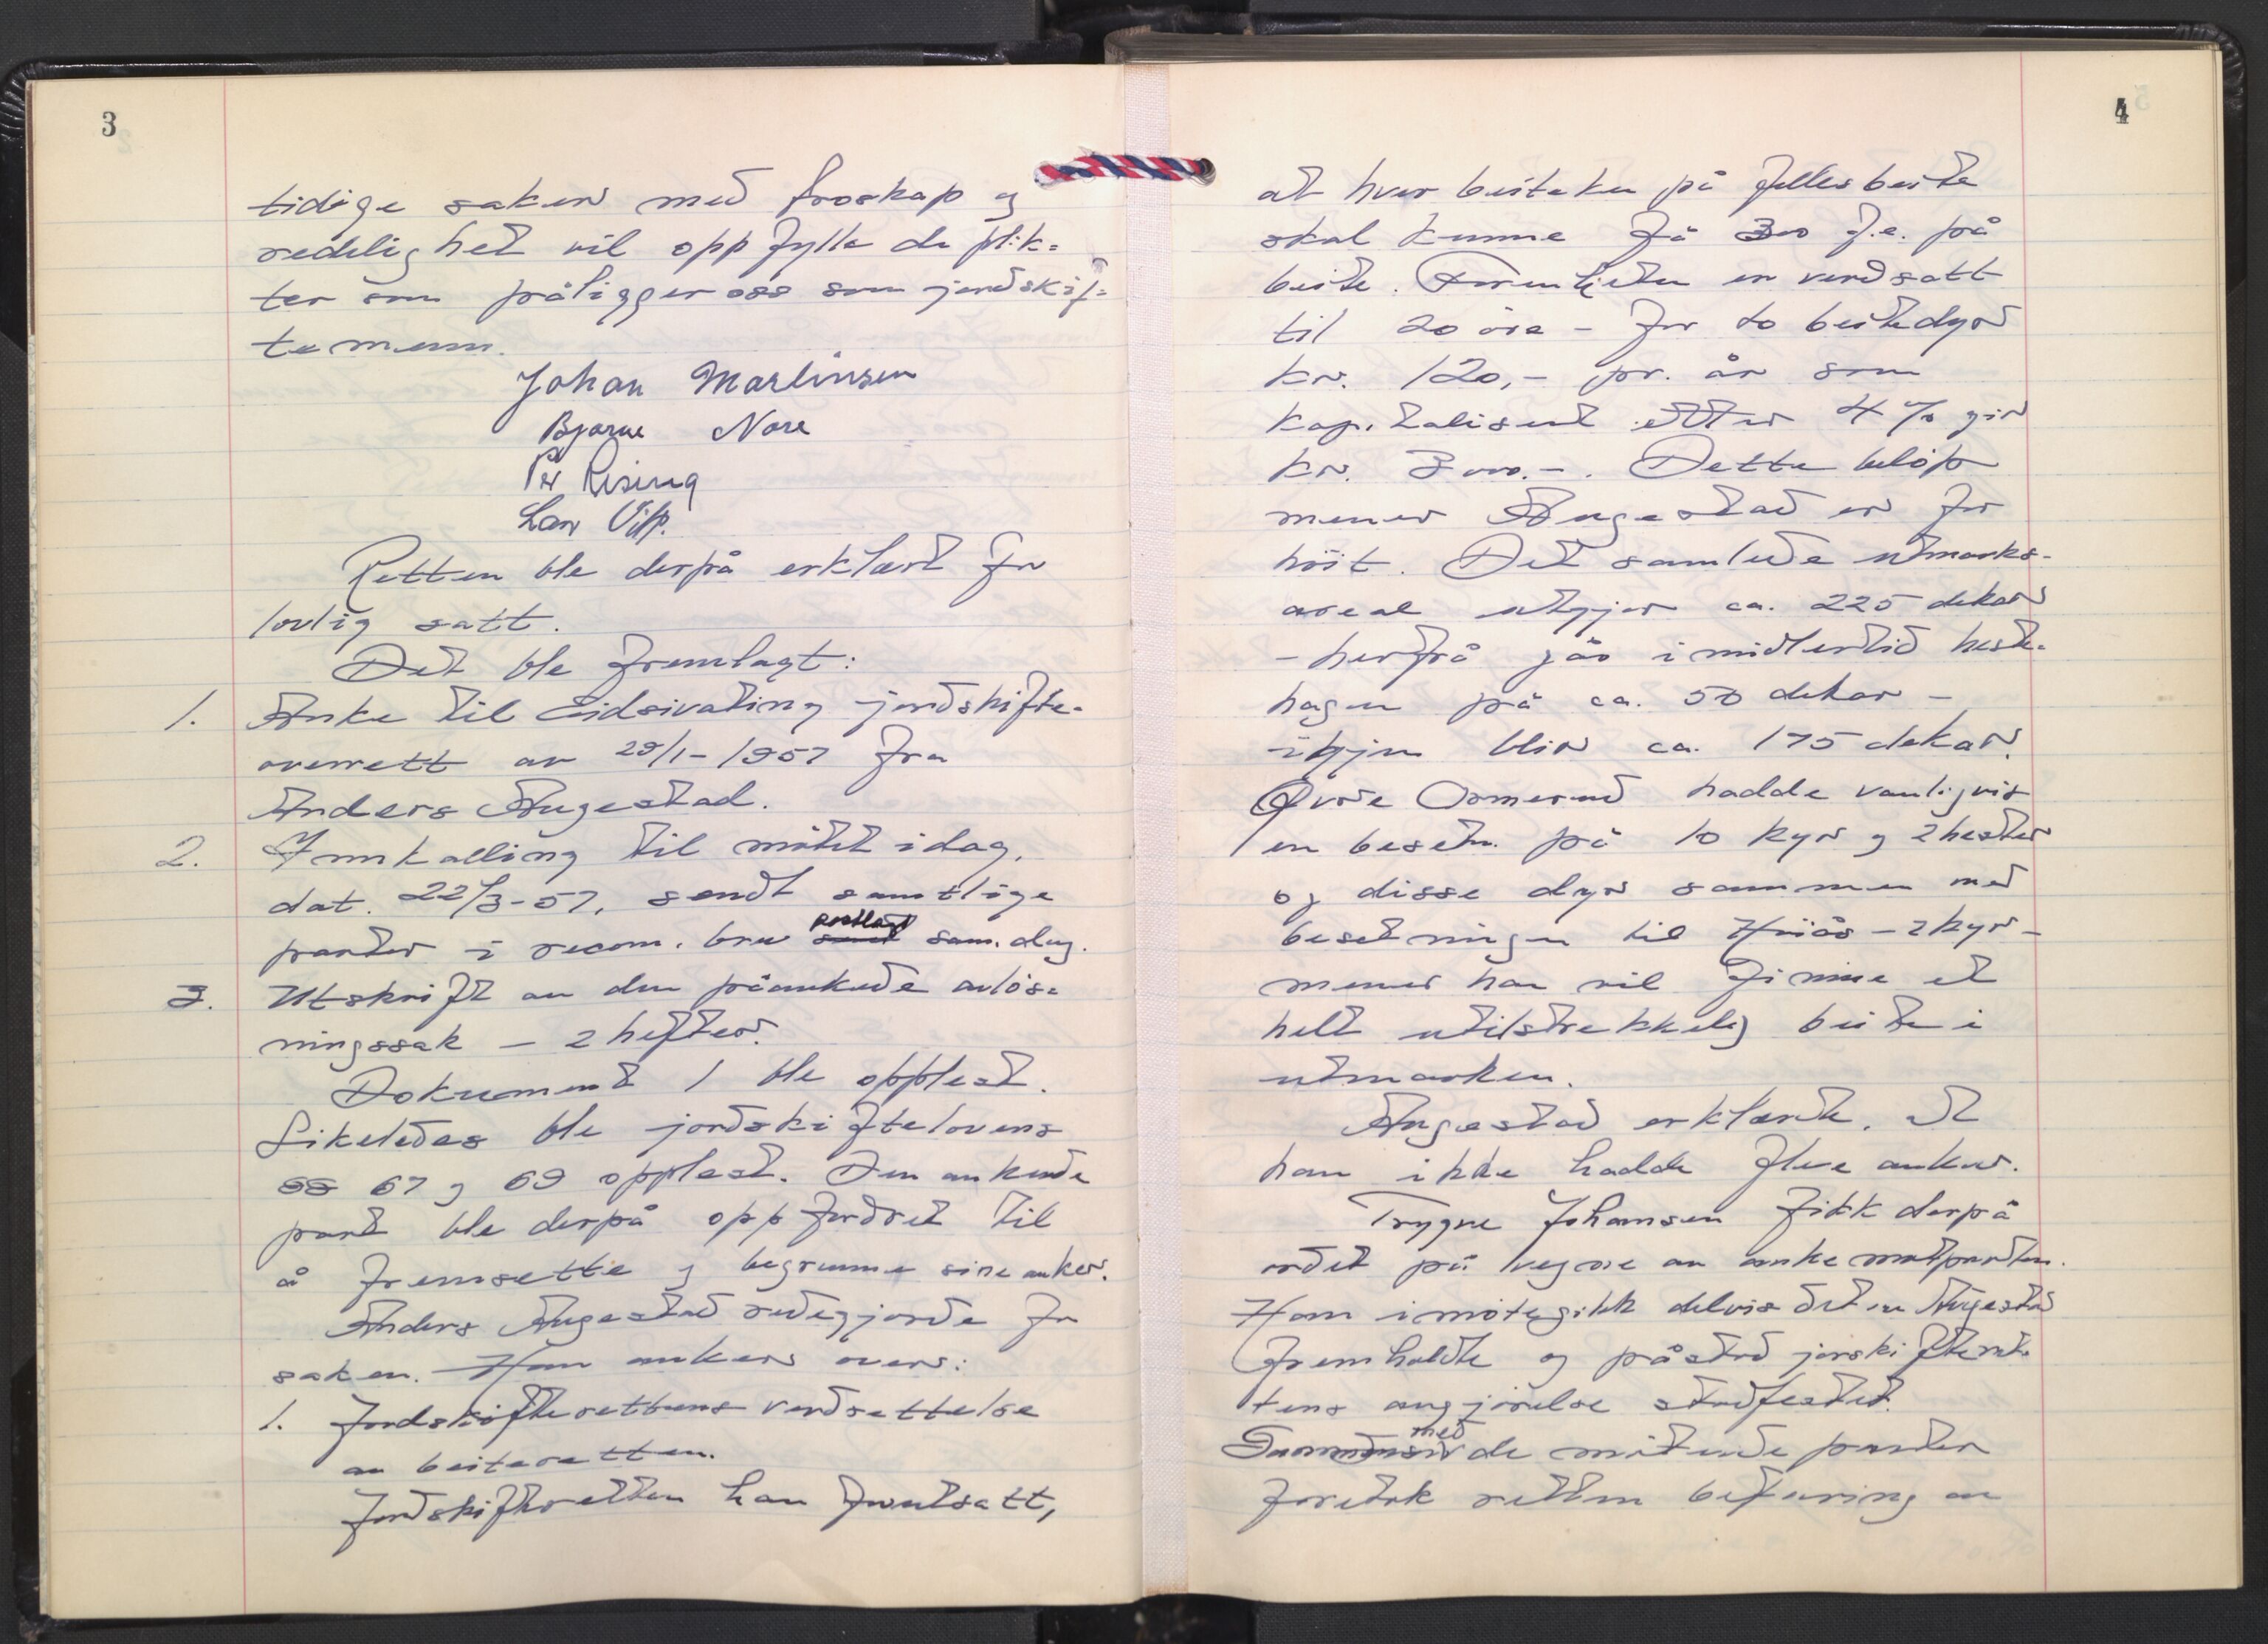 3
tidige saker med troskap og
redelighet vil oppfylle de plik=
ter som påligger oss som jordskif=
temenn.
Johan Martinsen
Bjarne Nore
Per Rising
Lars
Retten ble derpå erklært for
lovlig satt.
Det ble fremlagt:
1. Anke til Eidsivating jordskifte-
overrett av 29/1-1957 fra
Anders Augestad.
2. Innkalling til møtet idag,
dat. 22/3-57, sendt samtlige
parter i recom. brev postlagt sam. dag.
3. Utskrift av den påankede avløs=
ningssak – 2 hefter.
Dokument 1 ble opplest.
Likeledes ble jordskiftelovens
§§ 67 og 69 opplest. Den ankende
part ble derpå oppfordret til
å fremsette og begrunne sine anker.
Anders Augestad redegjorde for
saken. Han anker over:
1. Jordskifterettens verdsettelse
av beiteretten.
Jordskifteretten har forutsatt,
4
at hver beiteku på fellesbeite
skal kunne få 300 f.e. på
beite. Forenheten er verdsatt
til 20 øre – for to beitedyr
kr. 120,- pr. år som
kapitalisert etter 4 % gir
kr. 3000.-. Dette beløp
mener Augestad er for
høit. Det samlede utmarks-
areal utgjør ca. 225 dekar
– herfra går imidlertid heste-
hagen på ca. 50 dekar –
igjen blir ca. 175 dekar.
Øvre Ormerud hadde vanligvis
en besetn. på 10 kyr og 2 hester
og disse dyr sammen med
besetningen til – 2 kyr –
mener han vil finne et
helt utilstrekkelig beite i
utmarken.
Augestad erklærte, at
han ikke hadde flere anker.
Trygve Johansen fikk derpå
ordet på vegne av ankemotparten.
Han imøtegikk delvis det av Augestad
fremholdte og påstod jorskifteret-
tens avgjørelse stadfestet.
Sammen med de møtende parter
foretok retten befaring av